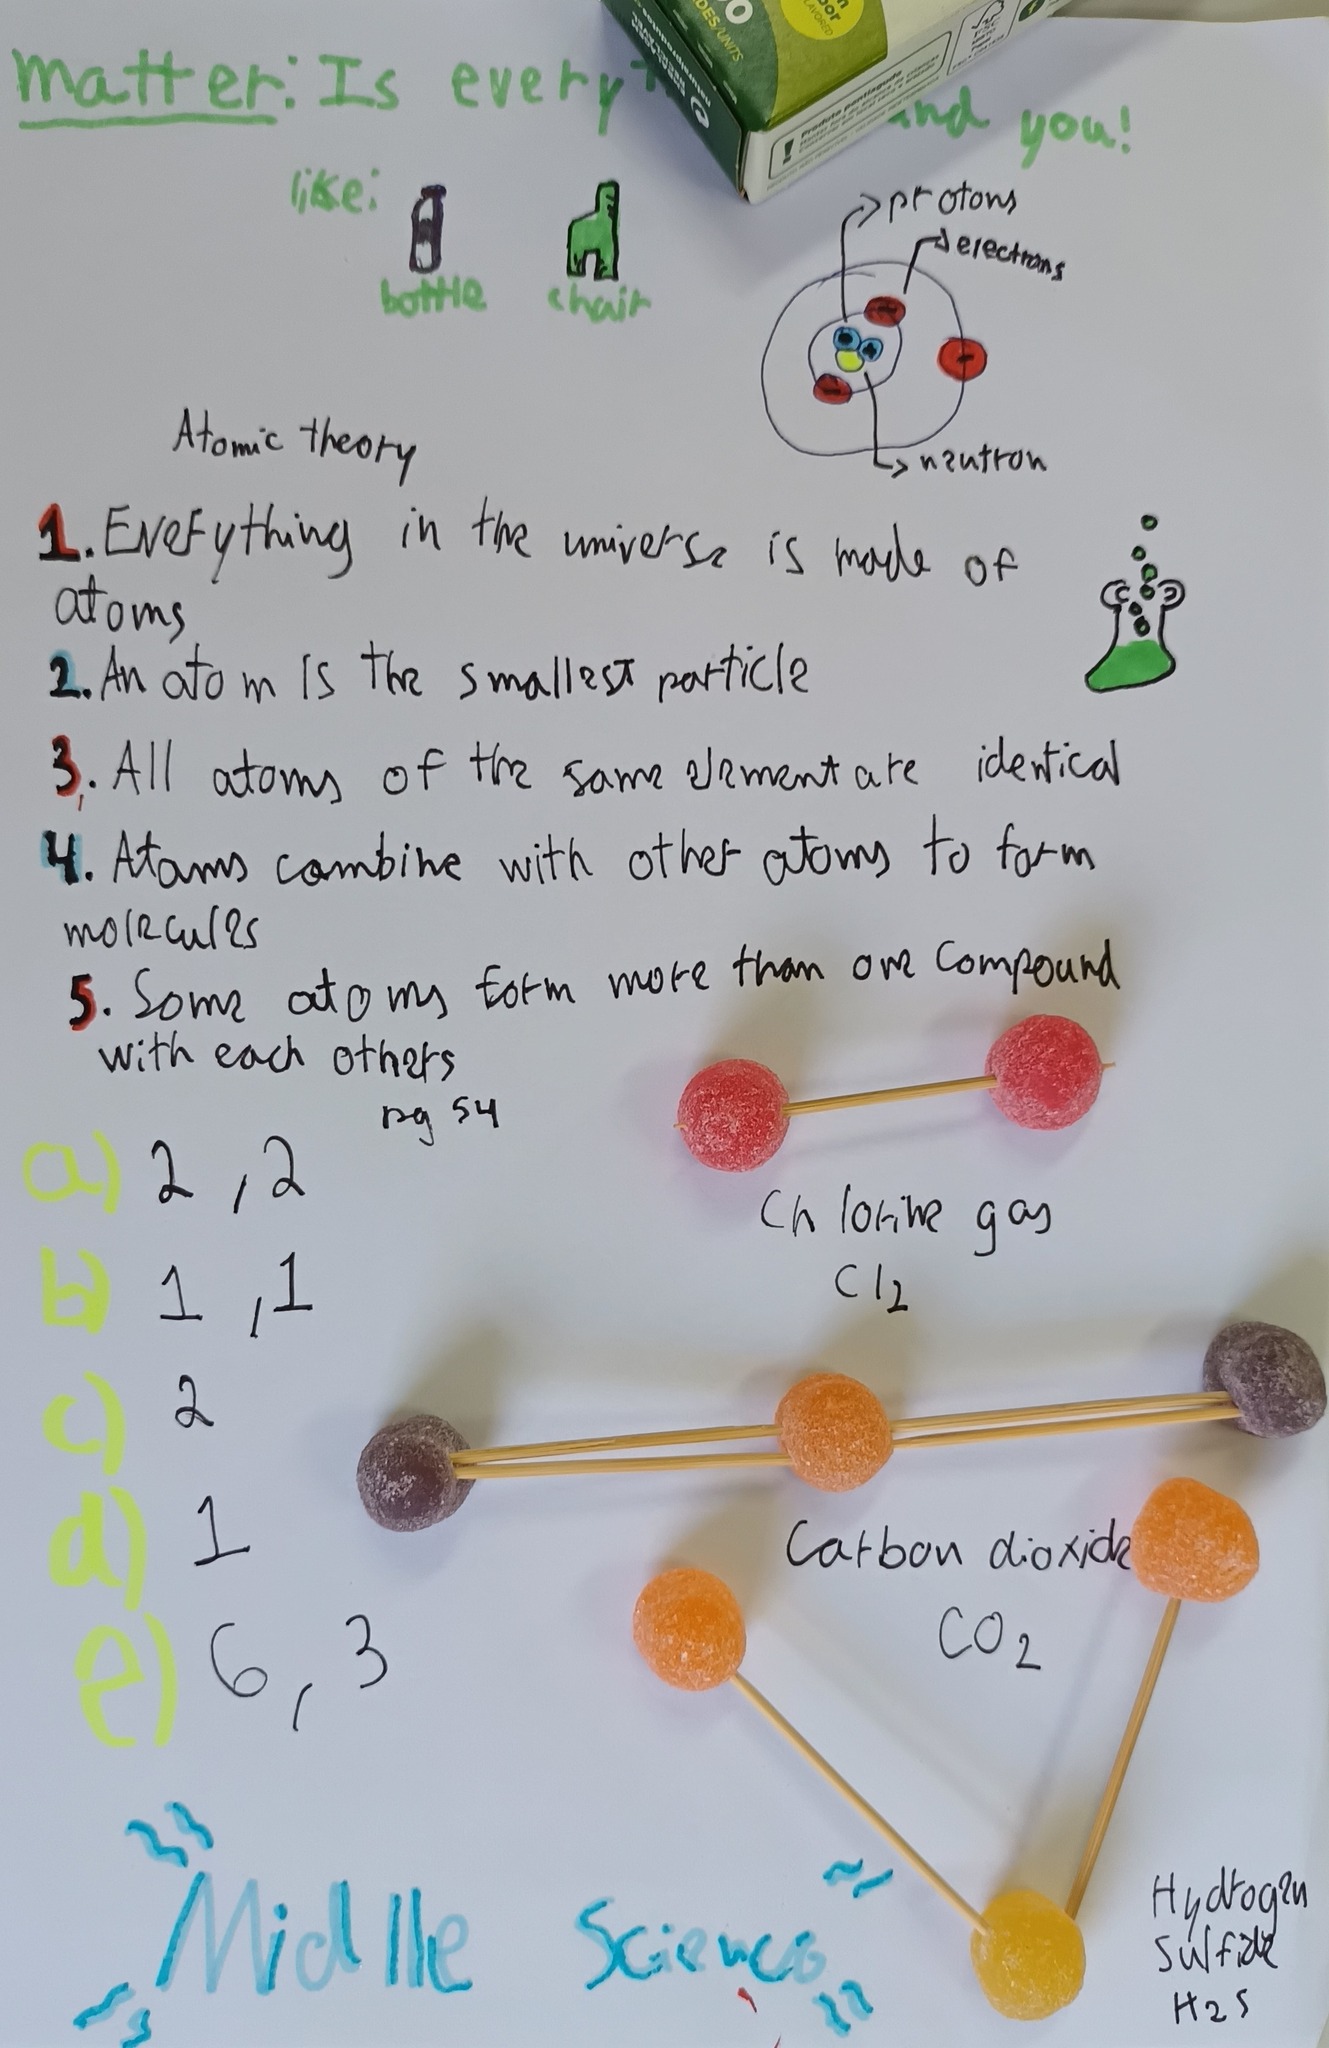 matter: Is every and you!
like:
bottle chair
protons
electrons
neutron
Atomic theory
1. Everything in the universe is made of
atoms
2. An atom is the smallest particle
3. All atoms of the same element are identical
4. Atoms combine with other atoms to form
molecules
5. Some atoms form more than one compound
with each others
pg 54
a) 2, 2
b) 1, 1
c) 2
d) 1
e) 6, 3
Chlorine gas
Cl2
Carbon dioxide
CO2
Hydrogen
sulfide
H2S
Middle Science